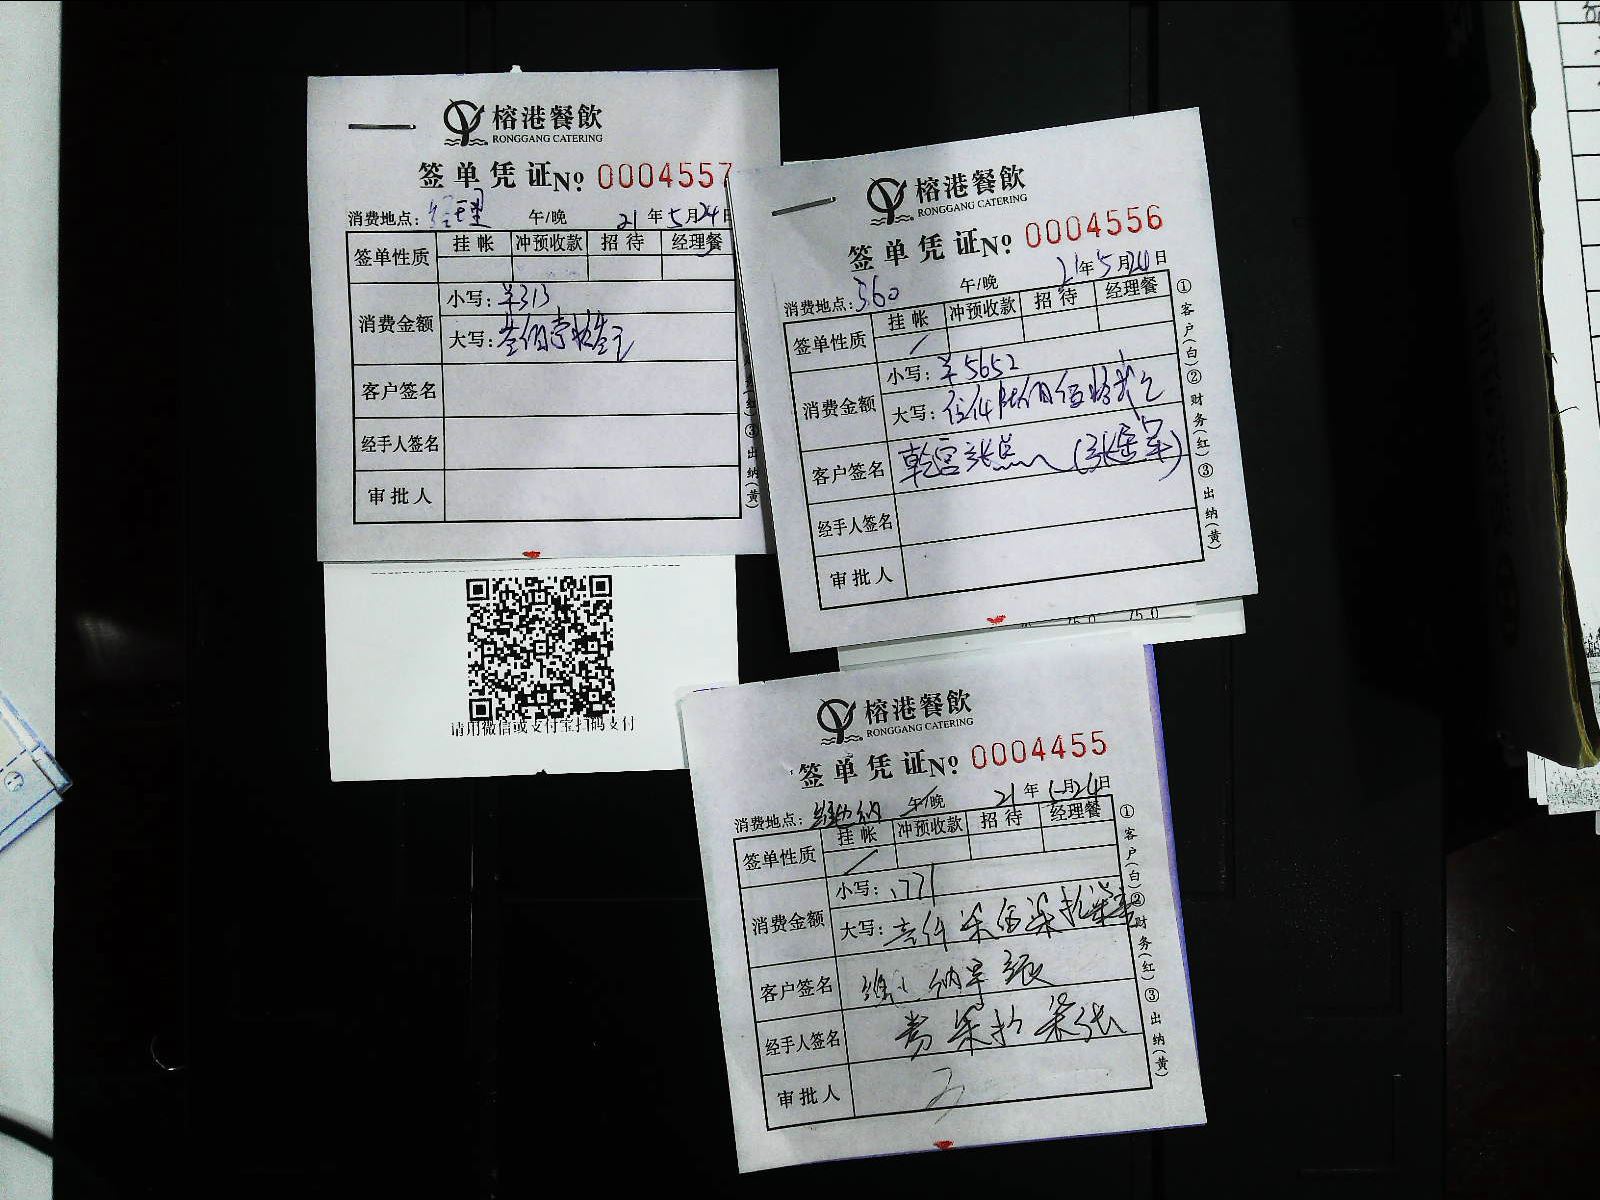 榕港餐飲
RONGGANG CATERING
签单凭证No 0004557
消费地点: 经理 午/晚 21年5月24日
签单性质 挂帐 冲预收款 招待 经理餐
消费金额 小写: ¥313
大写: 叁佰壹拾叁元
客户签名
经手人签名
审批人
③出纳(黄)
请用微信或支付宝扫码支付
榕港餐飲
RONGGANG CATERING
签单凭证No 0004556
消费地点: 360 午/晚 21年5月24日
签单性质 挂帐 冲预收款 招待 经理餐
消费金额 小写: ¥5652
大写: 伍仟陆佰伍拾贰元
客户签名 乾宫张总
经手人签名
审批人
①客户(白)②财务(红)③出纳(黄)
75.0 75.0
榕港餐飲
RONGGANG CATERING
签单凭证No 0004455
消费地点: 维也纳 午/晚 21年5月24日
签单性质 挂帐 冲预收款 招待 经理餐
消费金额 小写: 1771
大写: 壹仟柒佰柒拾
客户签名 纳
经手人签名
审批人
①客户(白)②财务(红)③出纳(黄)